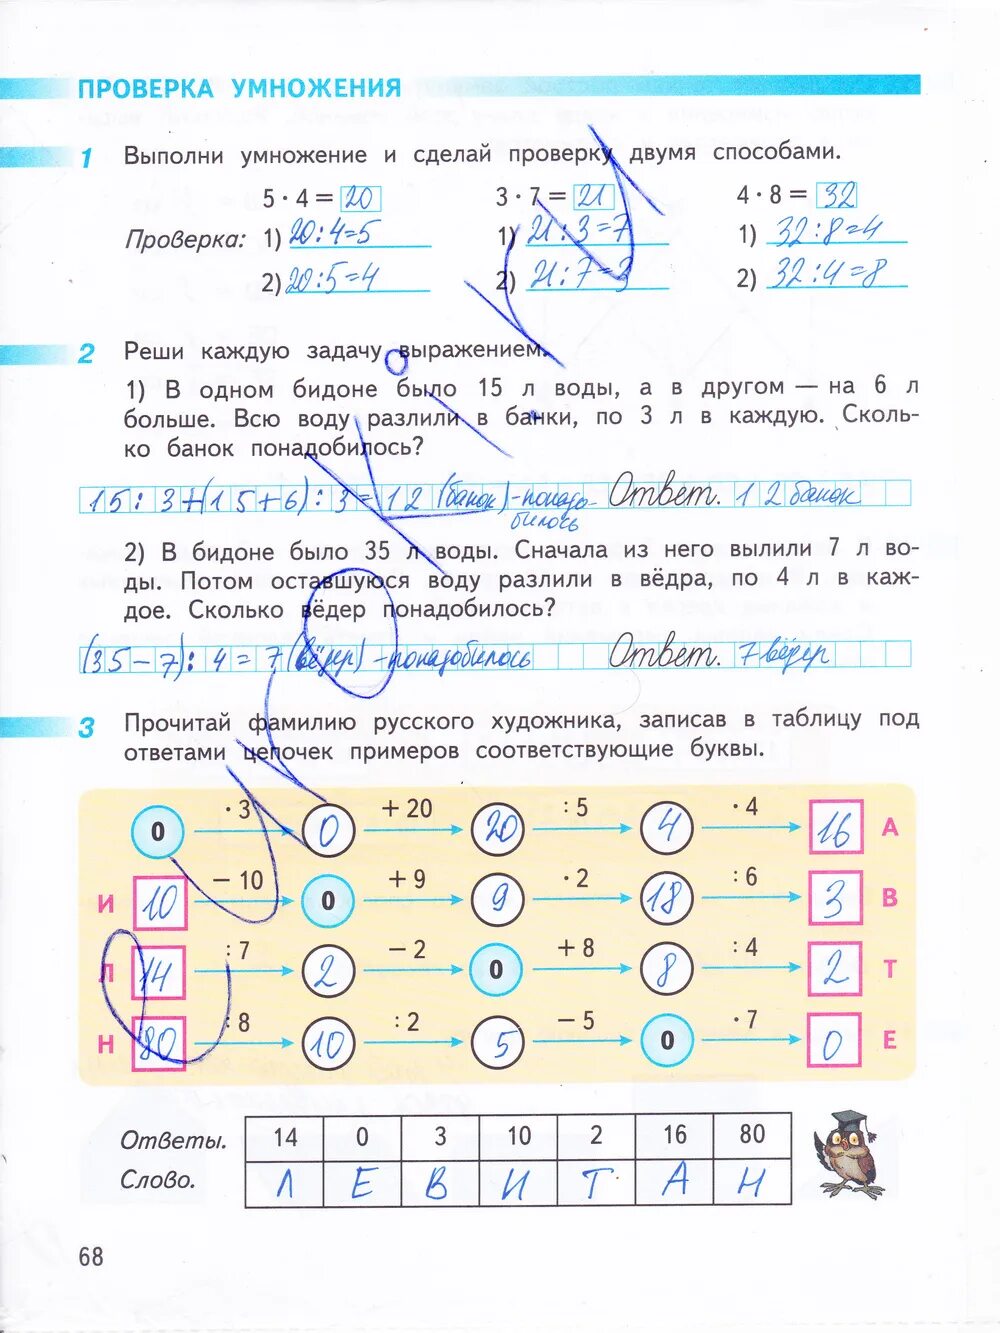 ПРОВЕРКА УМНОЖЕНИЯ
1 Выполни умножение и сделай проверку двумя способами.
5 · 4 = 20 3 · 7 = 21 4 · 8 = 32
Проверка: 1) 20:4=5 1) 21:3=7 1) 32:8=4
2) 20:5=4 2) 21:7=3 2) 32:4=8
2 Реши каждую задачу выражением.
1) В одном бидоне было 15 л воды, а в другом — на 6 л
больше. Всю воду разлили в банки, по 3 л в каждую. Сколь-
ко банок понадобилось?
15:3+(15+6):3=12 (банок)-понадо- Ответ. 12 банок
билось
2) В бидоне было 35 л воды. Сначала из него вылили 7 л во-
ды. Потом оставшуюся воду разлили в вёдра, по 4 л в каж-
дое. Сколько вёдер понадобилось?
(35-7):4=7 (вёдер)-понадобилось Ответ. 7 вёдер
3 Прочитай фамилию русского художника, записав в таблицу под
ответами цепочек примеров соответствующие буквы.
0 · 3 0 + 20 20 : 5 4 · 4 16 А
И 10 − 10 0 + 9 9 · 2 18 : 6 3 В
Л 14 : 7 2 − 2 0 + 8 8 : 4 2 Т
Н 80 : 8 10 : 2 5 − 5 0 · 7 0 Е
Ответы. 14 0 3 10 2 16 80
Слово. Л Е В И Т А Н
68